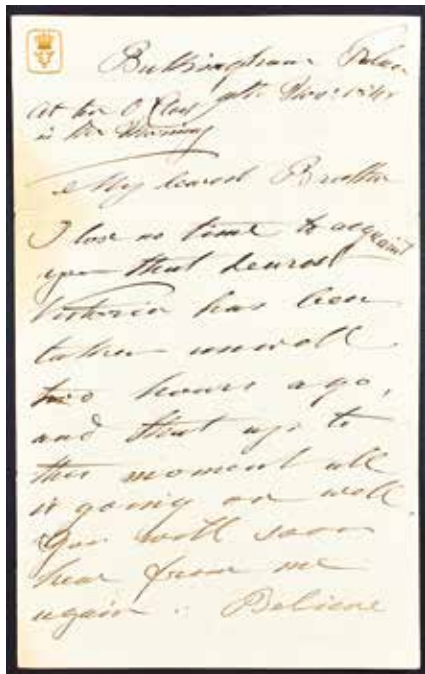 Buckingham Palace
at ten O'Clock 9th Nov: 1841
in the Morning
My dearest Brother
I lose no time to acquaint
you that dearest
Victoria has been
taken unwell
two hours ago,
and that up to
this moment all
is going on well.
You will soon
hear from me
again. Believe